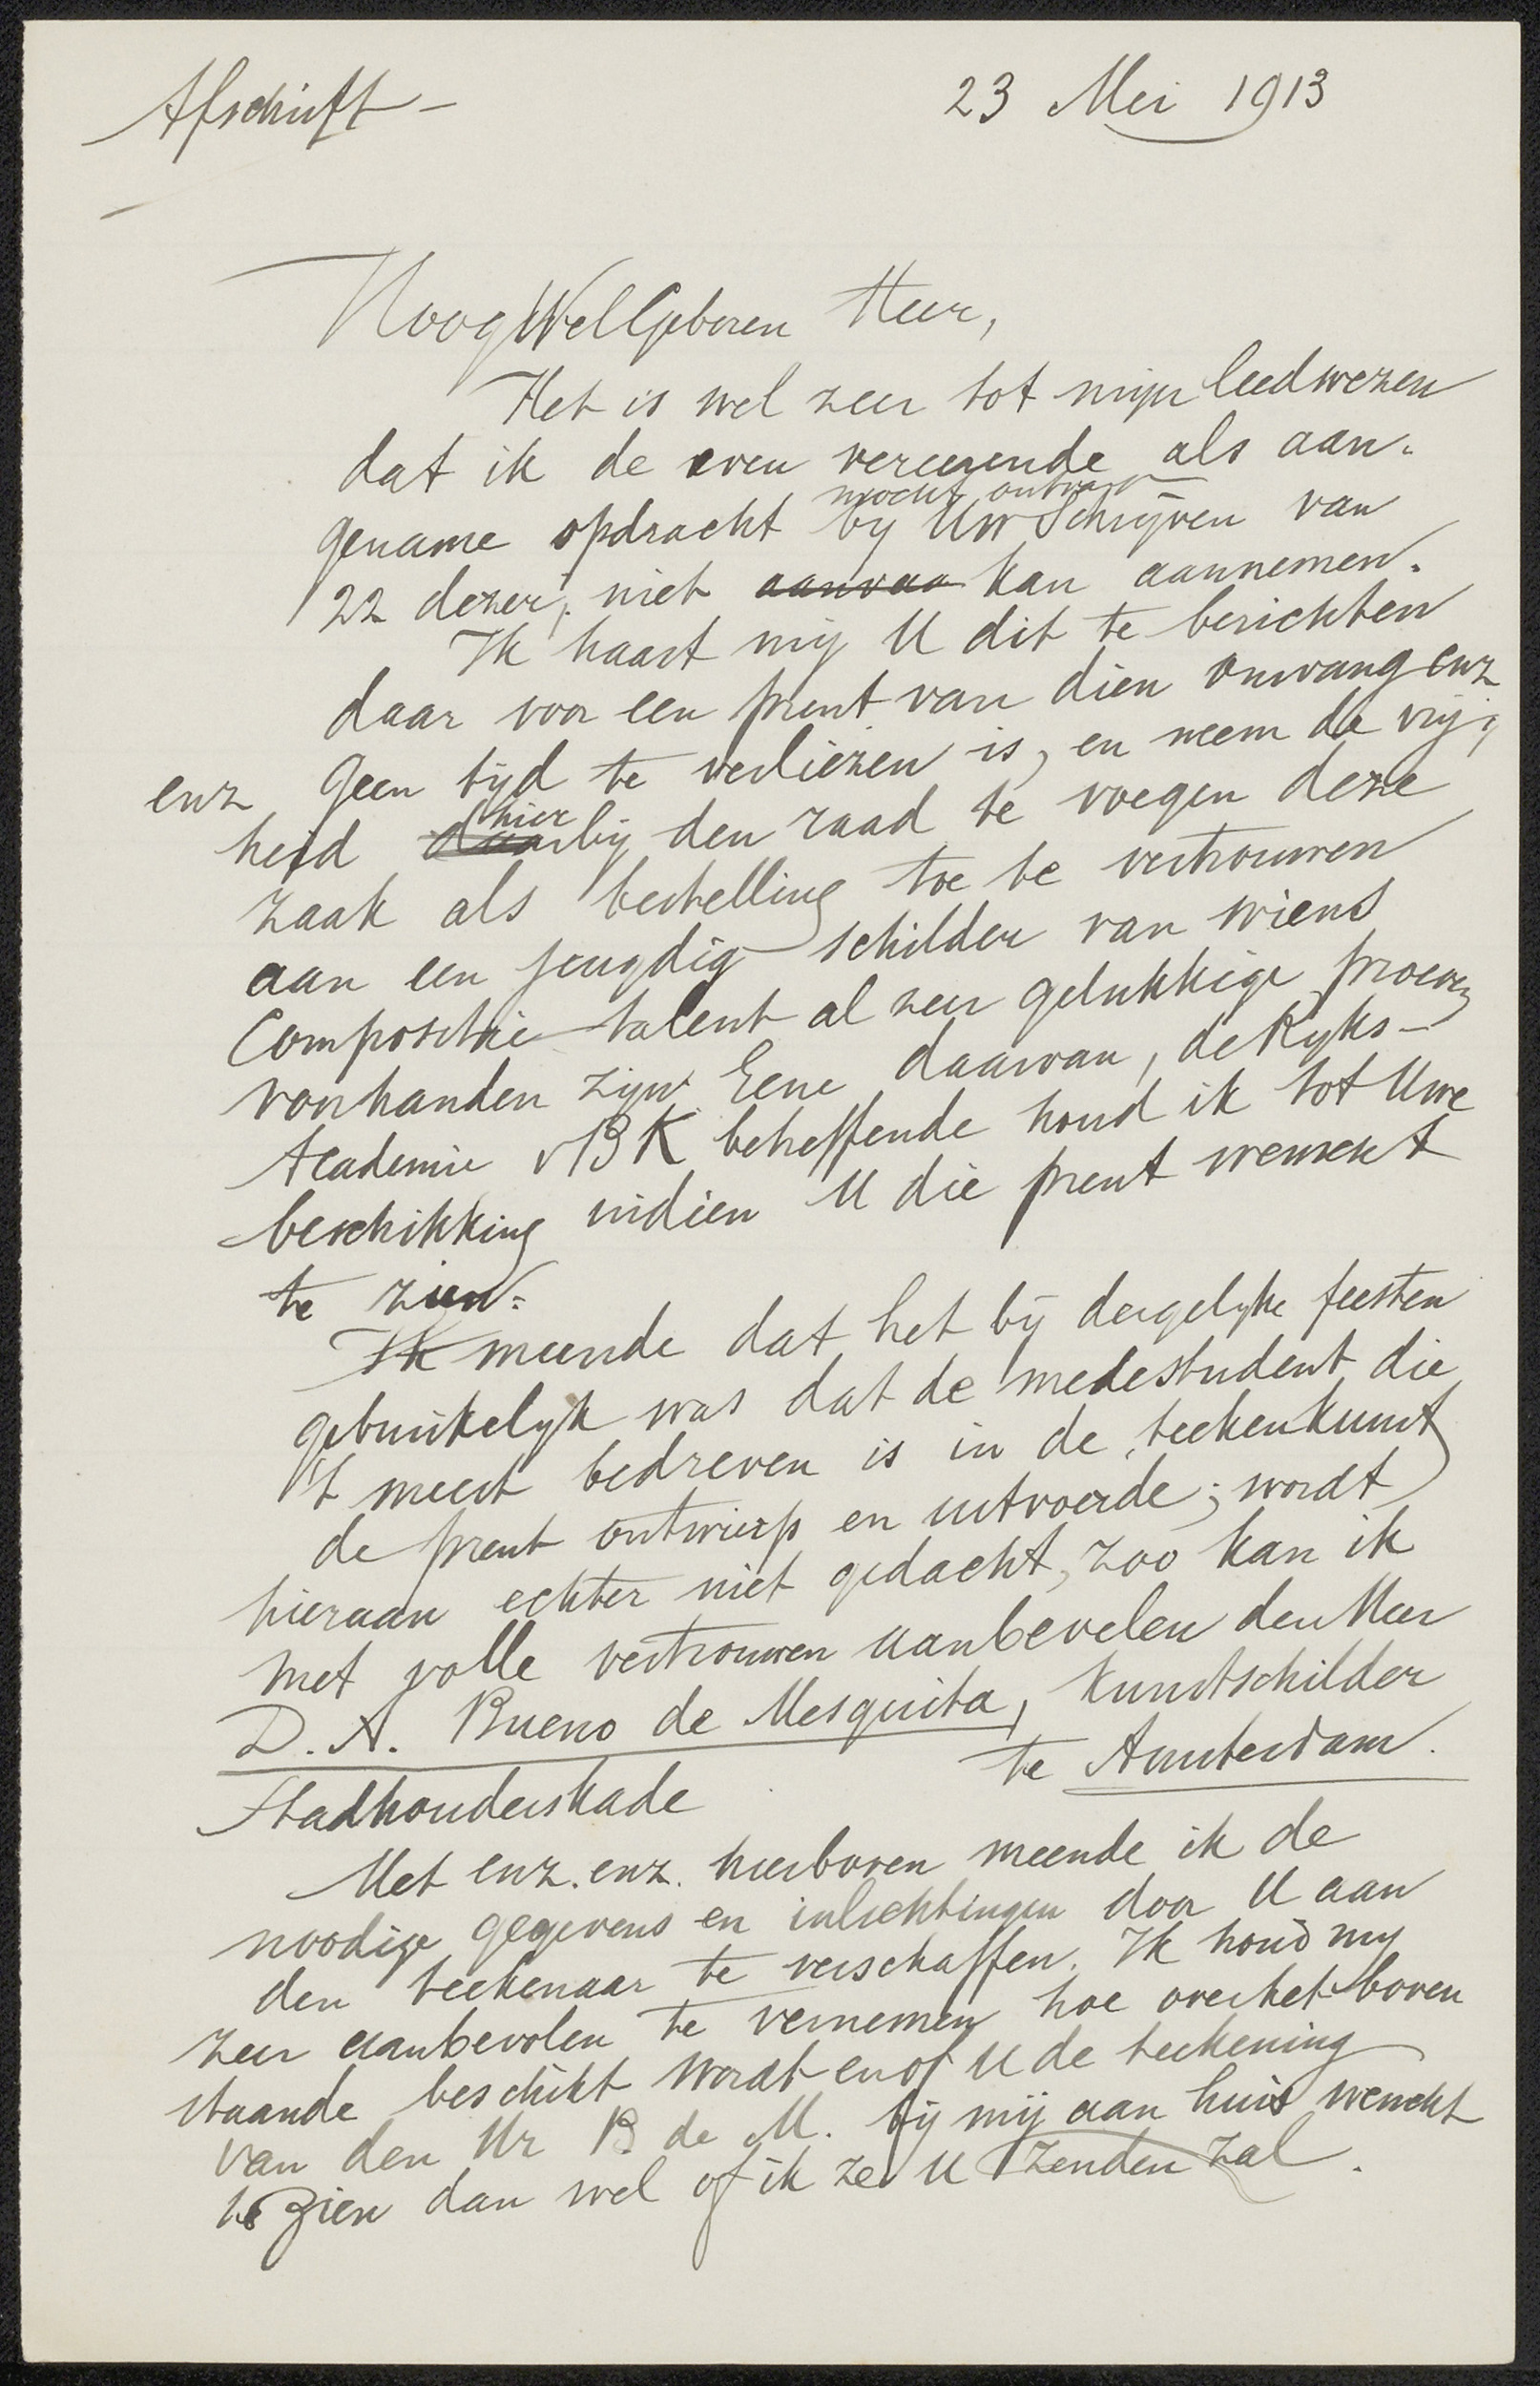 Afschrift - 23 Mei 1913
HoogWelGeboren Heer,
Het is wel zeer tot mijn leedwezen
dat ik de even vereerende als aan-
mocht ontvang
gename opdracht by Uw Schrijven van
22 dezer, niet aanvaa kan aannemen.
Ik haast mij U dit te berichten
daar voor een prent van dien omvang enz
enz geen tijd te verliezen is, en neem de vrij-
hier
heid daarby den raad te voegen deze
zaak als bestelling toe te vertrouwen
aan een jeugdig schilder van wiens
Compositie-talent al zeer gelukkige proeven
voorhanden zijn. Eene daarvan, de Ryks-
Academie v B K betreffende houd ik tot Uwe
beschikking indien U die prent wenscht
te zien.
Ik meende dat het bij dergelyke feesten
gebruikelyk was dat de medestudent die
't meest bedreven is in de teekenkunst
de prent ontwierp en uitvoerde; wordt
hieraan echter niet gedacht, zoo kan ik
met volle vertrouwen aanbevelen den Heer
D. A. Bueno de Mesquita, Kunstschilder
te Amsterdam.
Stadhouderskade
Met enz. enz. hierboven meende ik de
noodige gegevens en inlichtingen door U aan
den teekenaar te verschaffen. Ik houd my
zeer aanbevolen te vernemen hoe over het boven
staande beschikt wordt en of U de teekening
van den Hr B de M. bij mij aan huis wenscht
te zien dan wel of ik ze U zenden zal.